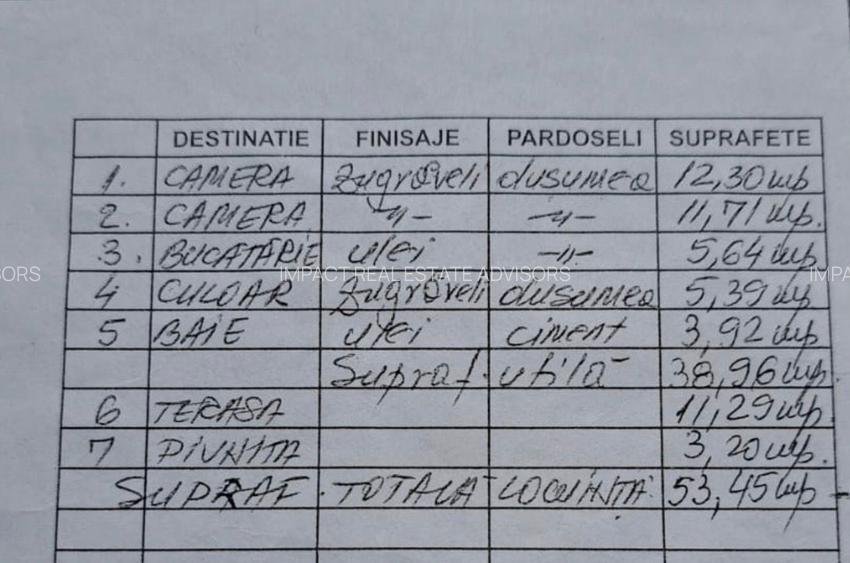 DESTINATIE FINISAJE PARDOSELI SUPRAFETE
1. CAMERA Zugrăveli dusumea 12,30 mp
2. CAMERA -"- -"- 11,71 mp.
3. BUCATĂRIE ulei -"- 5,64 mp
ISORS IMPACT REAL ESTATE ADVISORS IMPA
4 CULOAR Zugrăveli dusumea 5,39 mp
5 BAIE ulei ciment 3,92 mp
Supraf. utilă 38,96 mp.
6 TERASA 11,29 mp.
7 PIVNITA 3,20 mp.
SUPRAF. TOTALĂ LOCUINTĂ 53,45 mp -